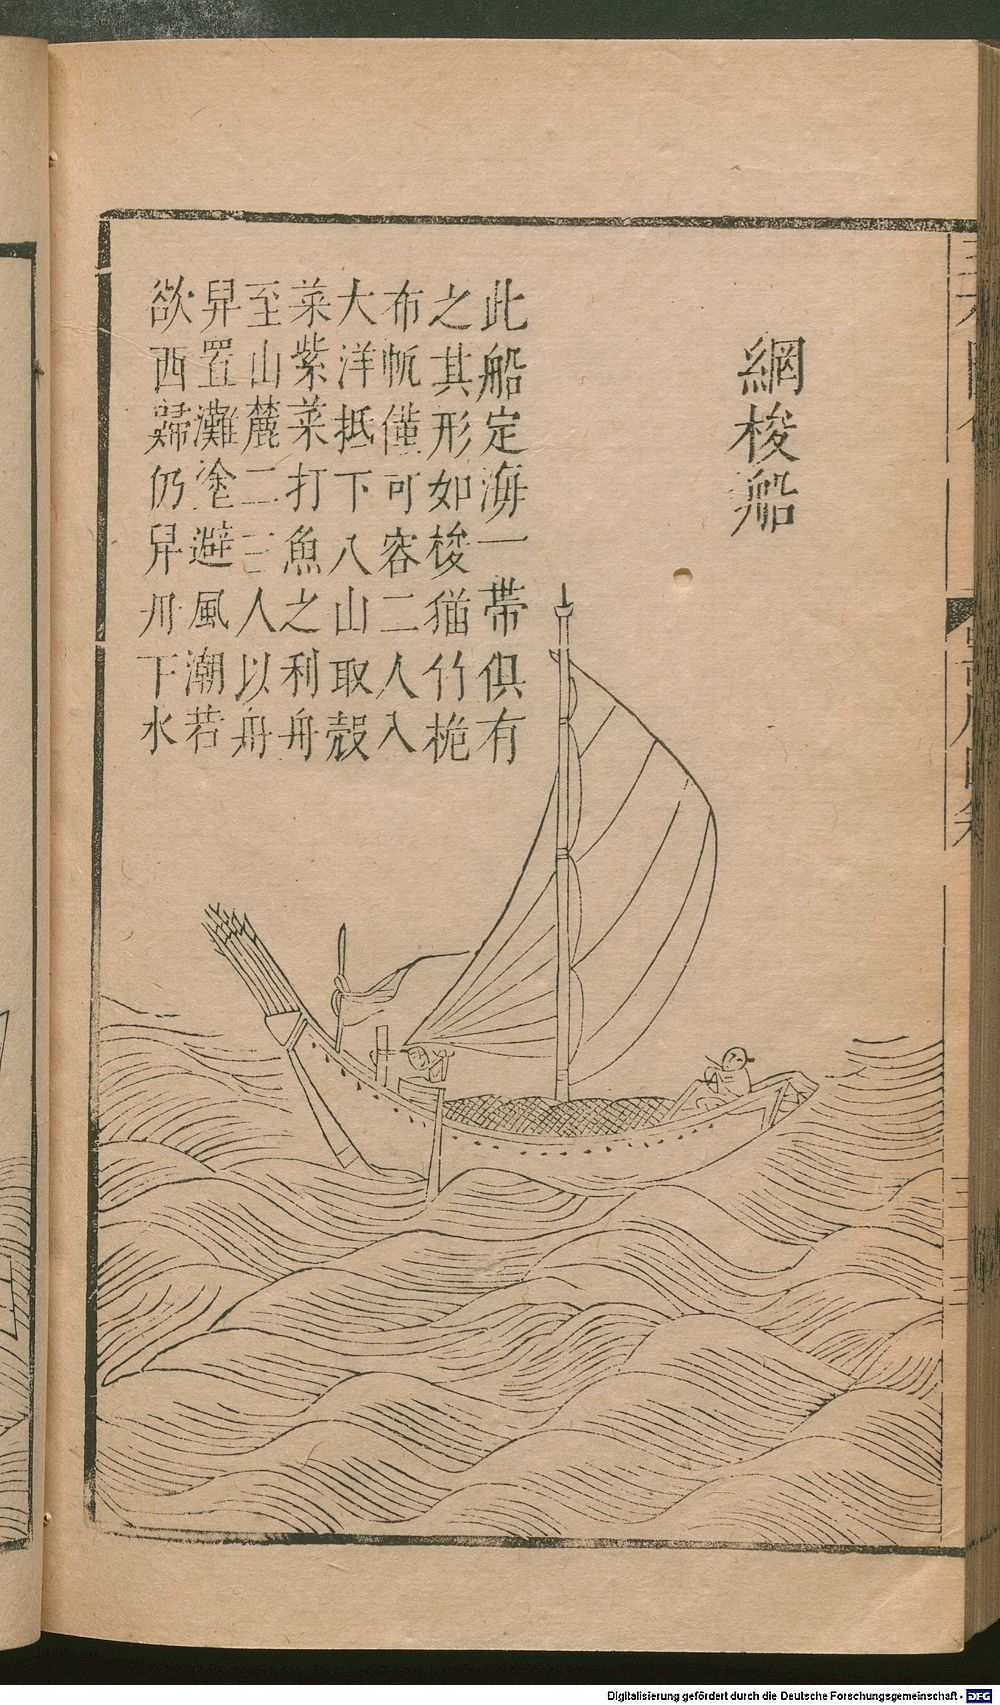 網梭船
此船定海一帶俱有
之其形如梭猫竹桅
布帆僅可容二人入
大洋抵下八山取殼
菜紫菜打魚之利舟
至山麓二三人以舟
舁置灘塗避風潮若
欲西歸仍舁舟下水
Digitalisierung gefördert durch die Deutsche Forschungsgemeinschaft - DFG